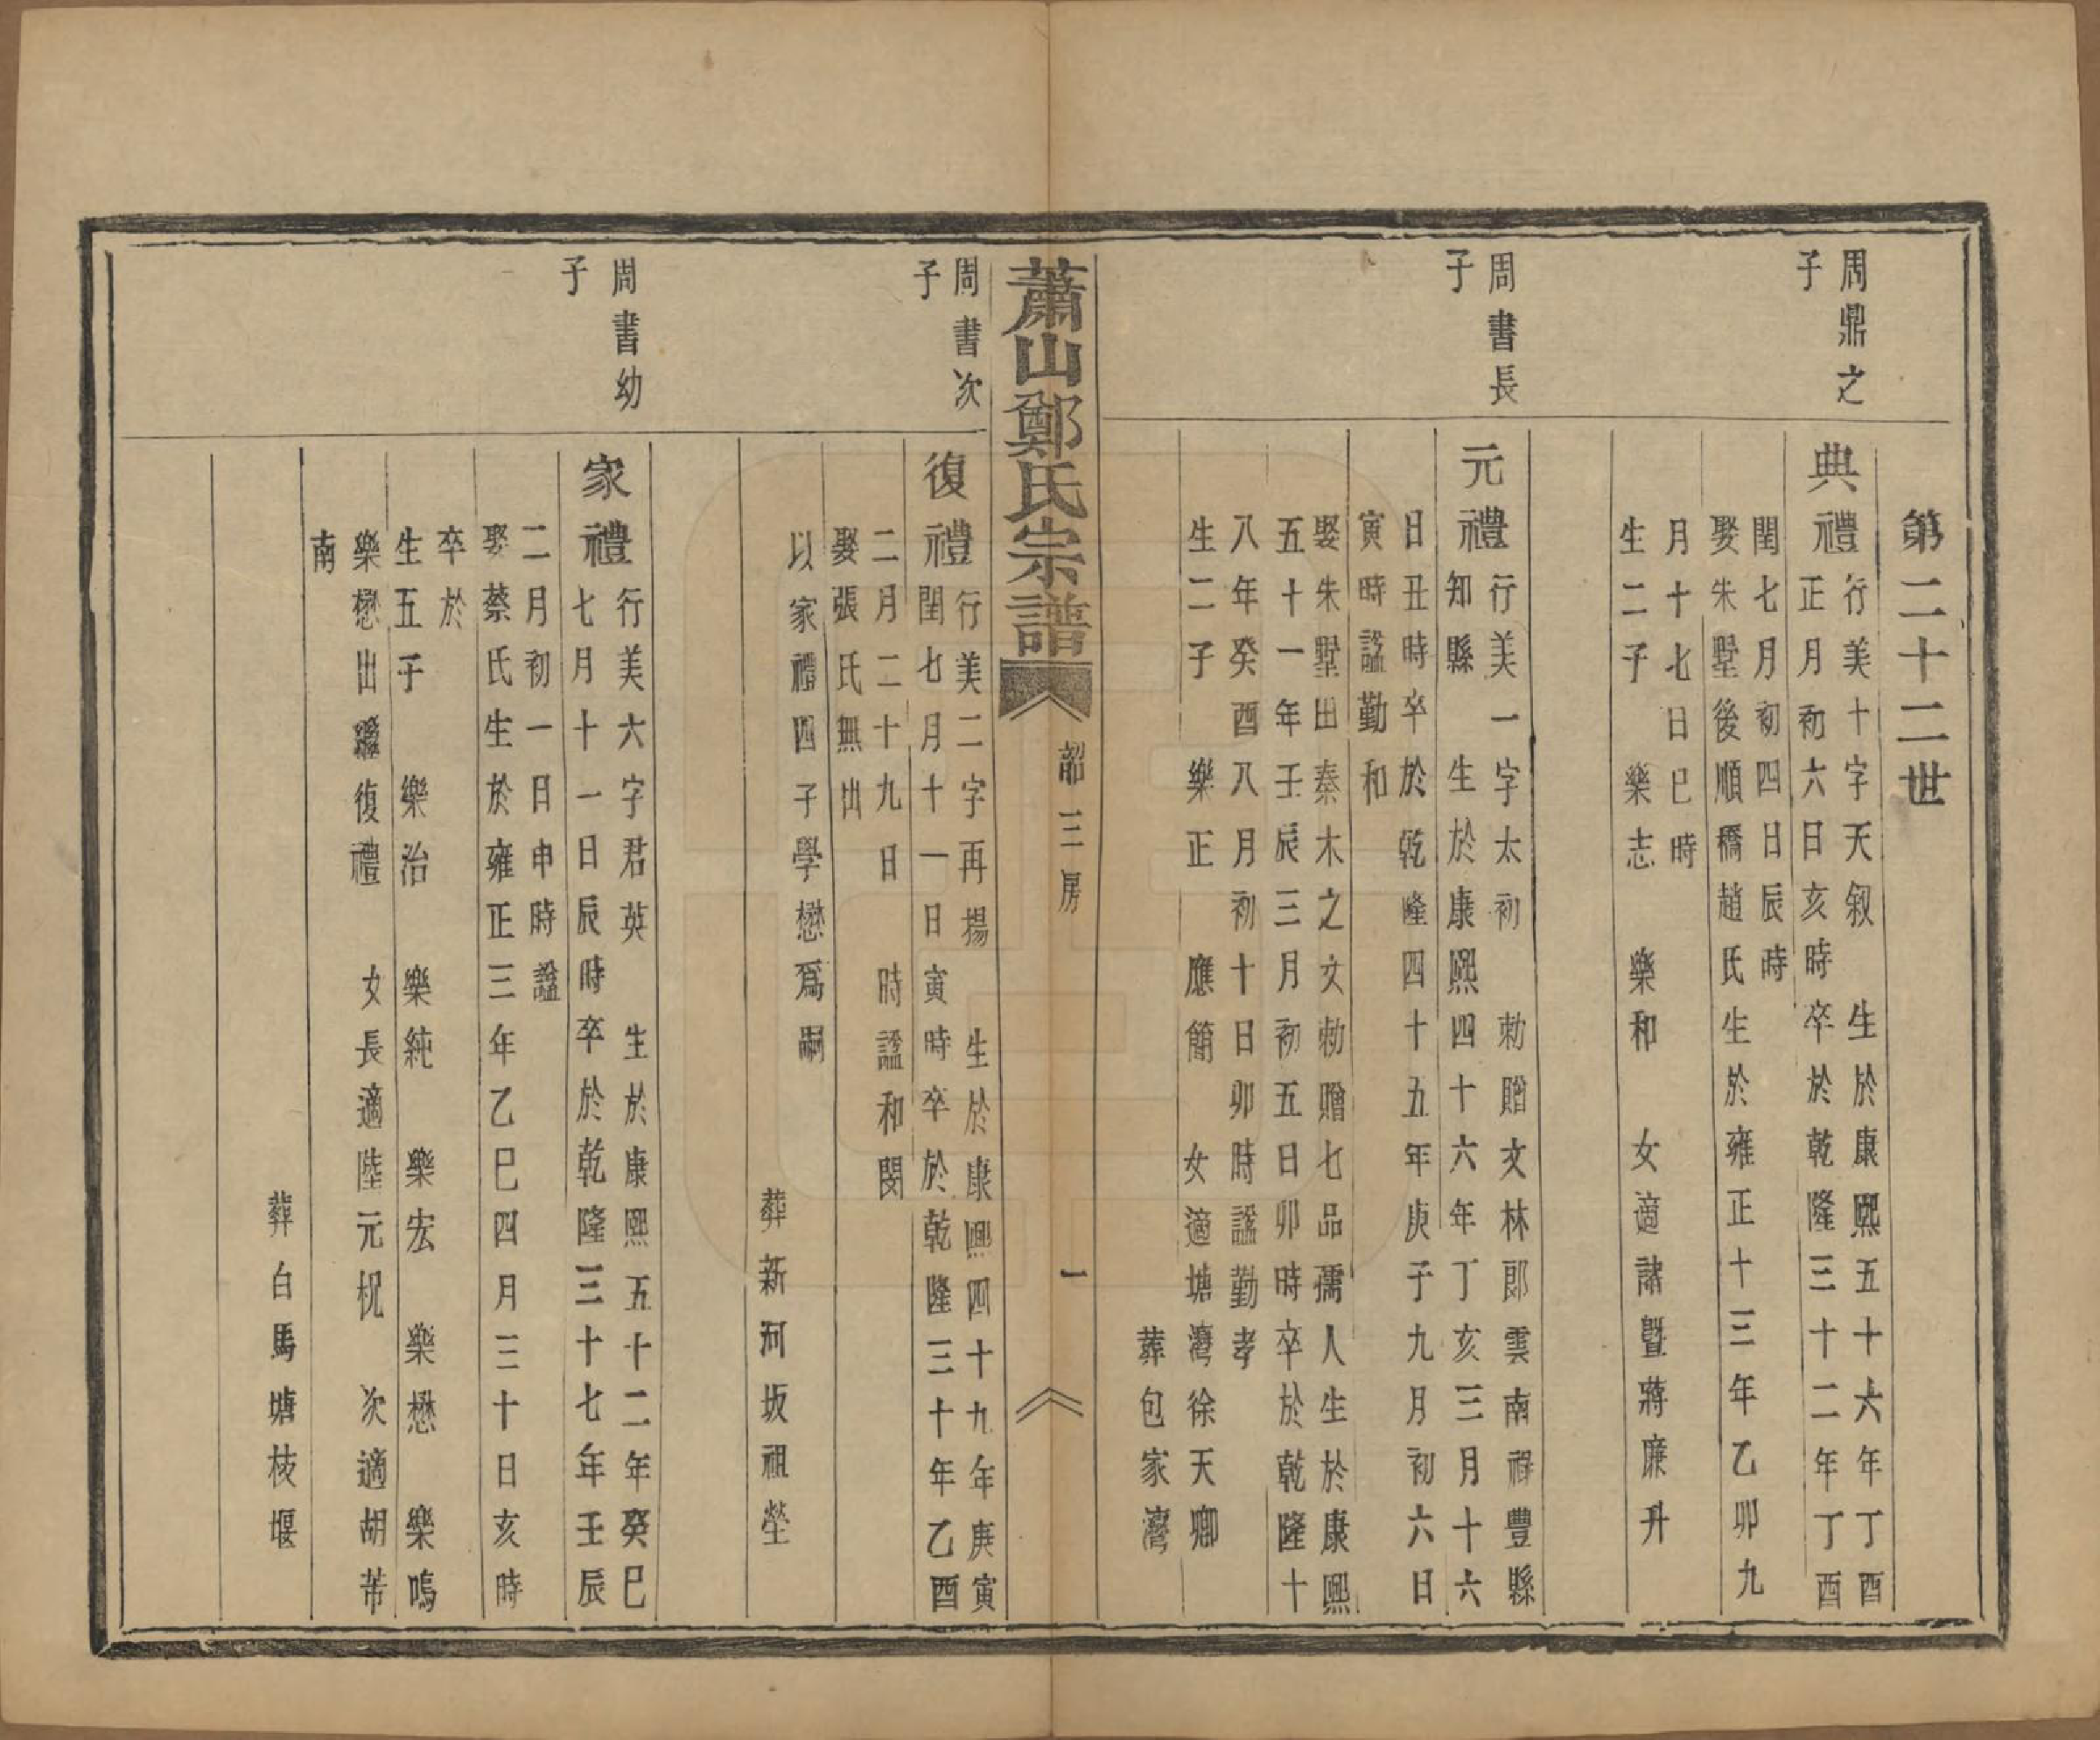 第二十二世
周鼎之
子
典禮
行美十字天叙　生於康熙五十六年丁酉
正月初六日亥時卒於乾隆三十二年丁酉
閏七月初四日辰時
娶朱墅後順橋趙氏生於雍正十三年乙卯九
月十七日巳時
生二子　樂志　樂和　女適諸暨蔣廉升
周書長
子
元禮
行美一字太初　勅贈文林郎雲南祿豐縣
知縣　生於康熙四十六年丁亥三月十六
日丑時卒於乾隆四十五年庚子九月初六日
寅時諡勤和
娶朱墅田秦木之女勅贈七品孺人生於康熙
五十一年壬辰三月初五日卯時卒於乾隆十
八年癸酉八月初十日卯時諡勤孝
生二子　樂正　應簡　女適塘灣徐天卿
葬包家灣
蕭山鄭氏宗譜
韶三房
一
周書次
子
復禮
行美二字再揚　生於康熙四十九年庚寅
閏七月十一日寅時卒於乾隆三十年乙酉
二月二十九日　時諡和閔
娶張氏無出
以家禮四子學懋爲嗣
葬新河坂祖塋
周書幼
子
家禮
行美六字君英　生於康熙五十二年癸巳
七月十一日辰時卒於乾隆三十七年壬辰
二月初一日申時諡
娶蔡氏生於雍正三年乙巳四月三十日亥時
卒於
生五子　樂治　樂純　樂宏　樂懋　樂鳴
樂懋出繼復禮　女長適陸元柷　次適胡芾
南
葬白馬塘枝堰